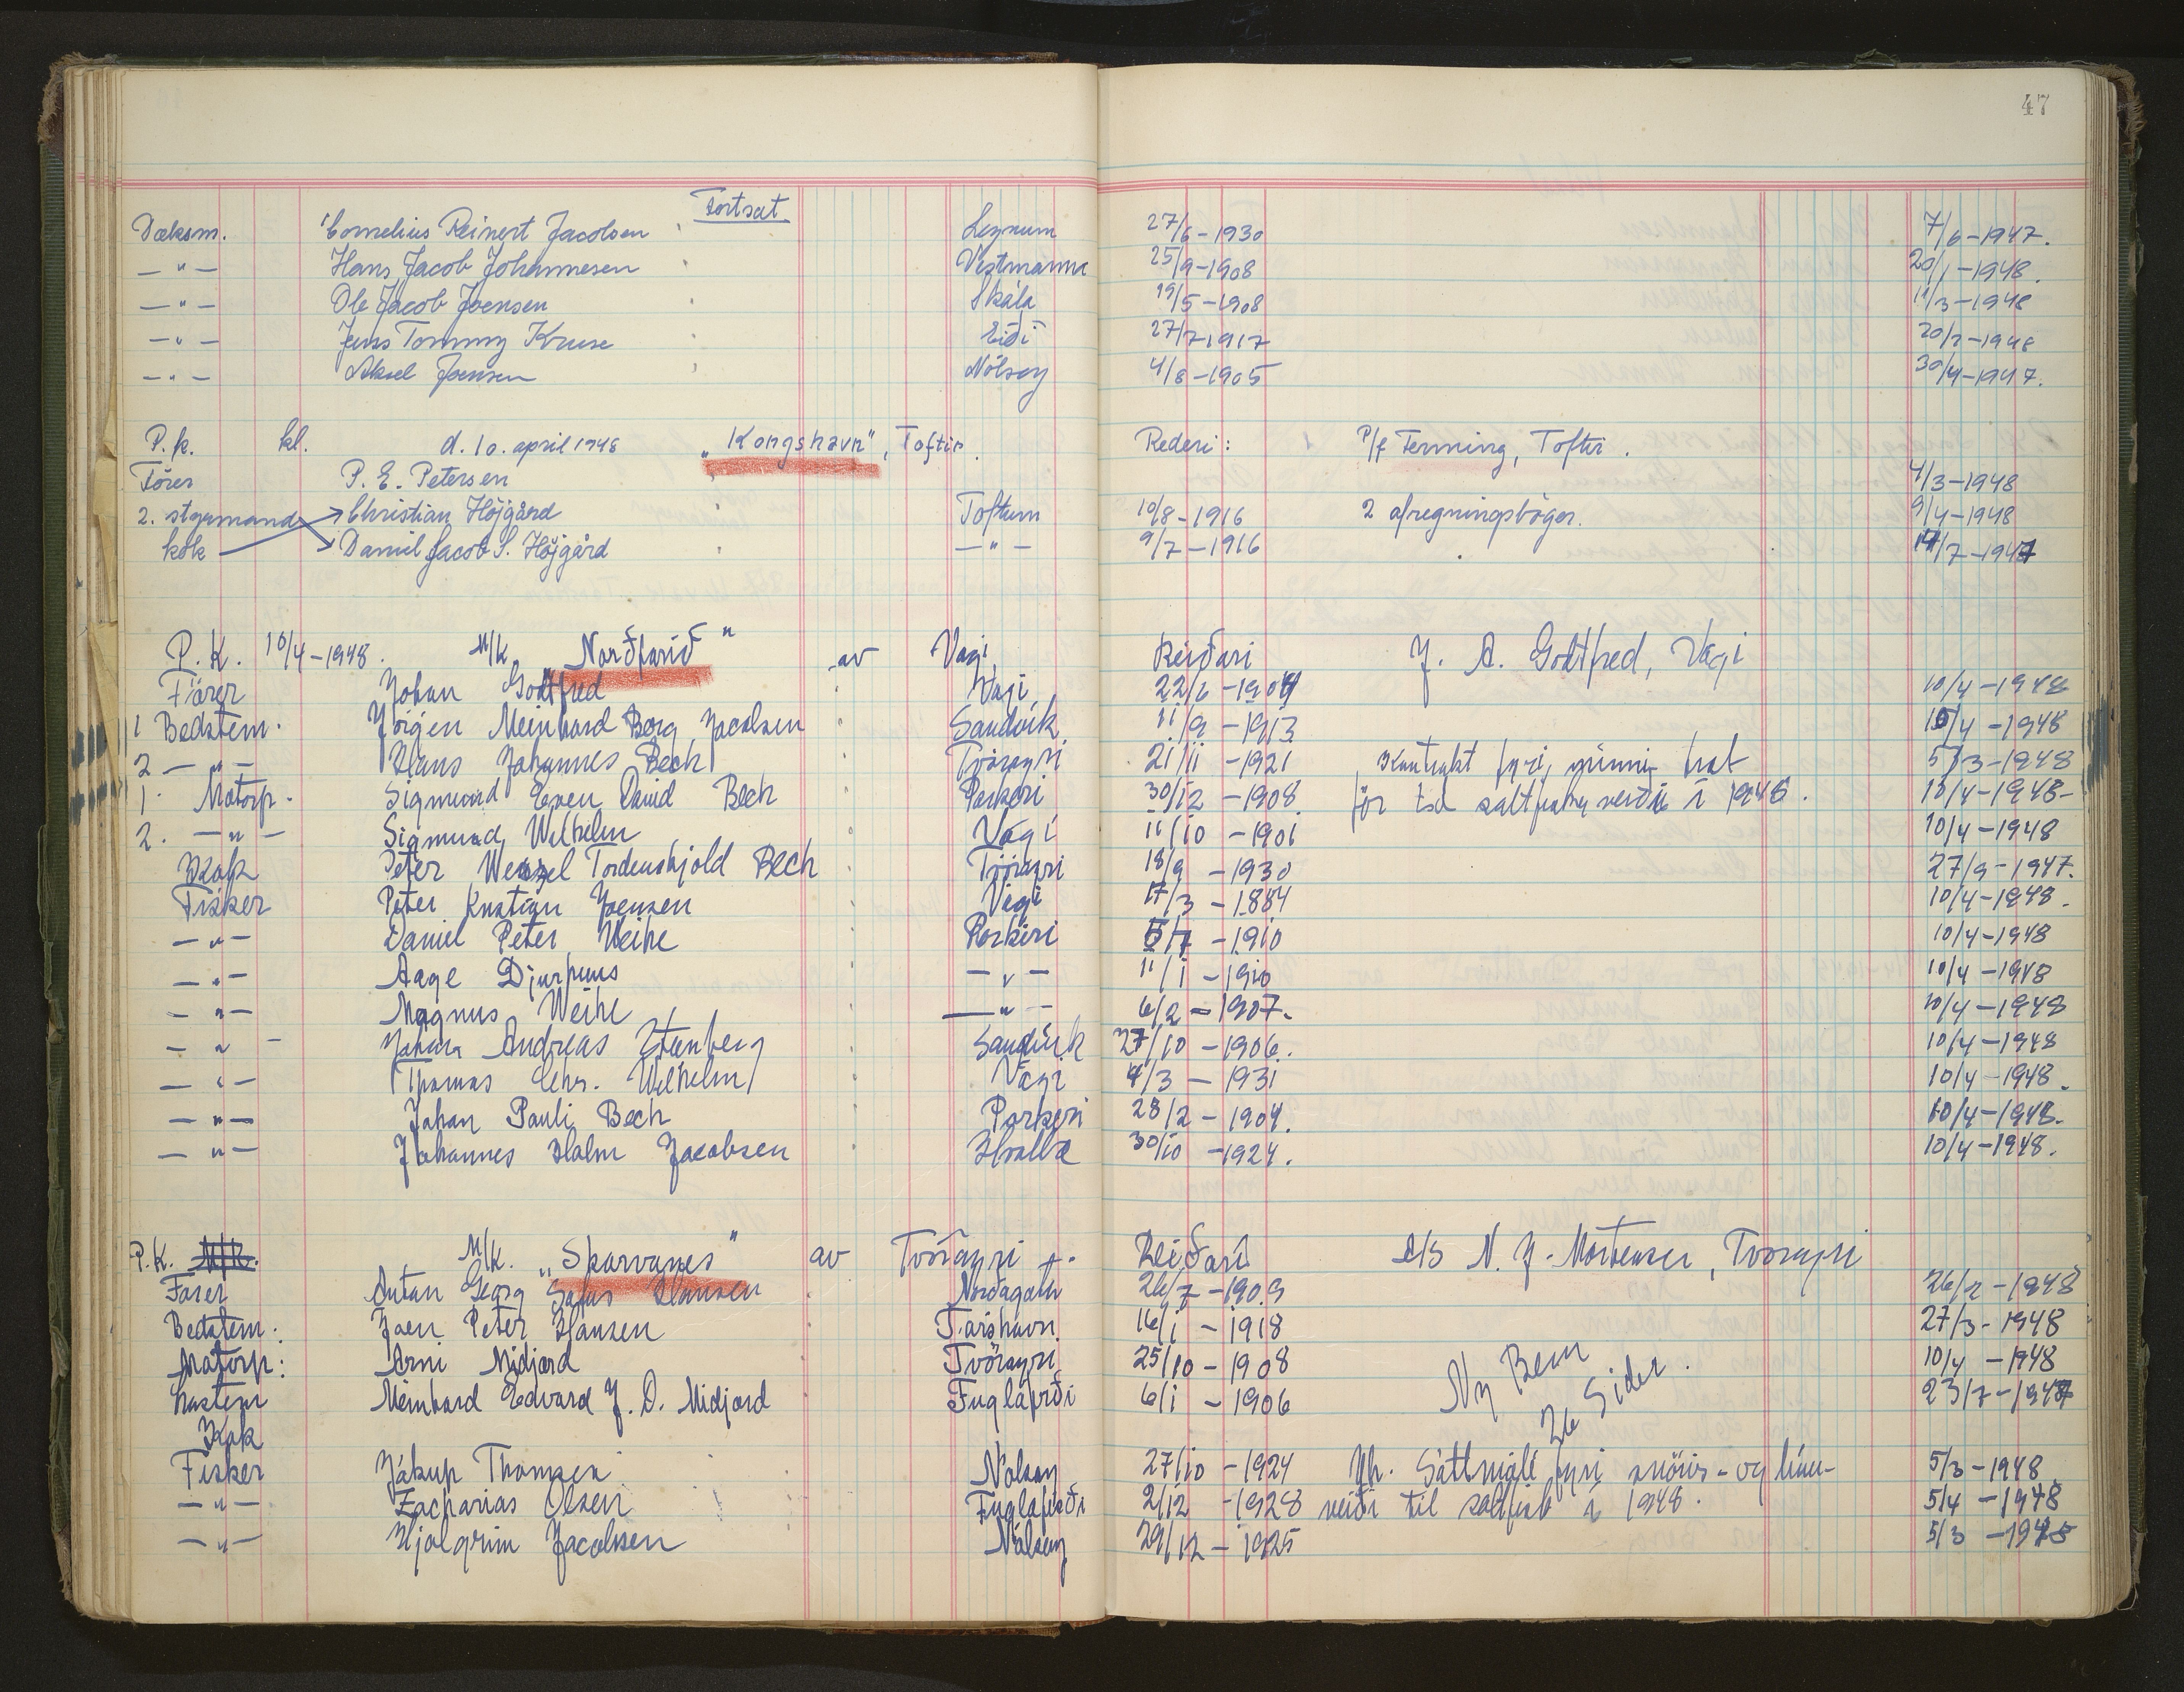 47
Fortsat
Dæksm. Cornelius Reinert Jacobsen Leynum 27/6-1930 7/6-1947.
— " — Hans Jacob Johannesen Vestmanna 25/9-1908 20/1-1948.
— " — Ole Jacob Joensen Skála 19/5-1908 11/3-1948
— " — Jens Tommy Kruse Eiði 27/7-1917 20/2-1948
— " — Aksel Joensen Nólsoy 4/8-1905 30/4-1947.
P.k. kl. d. 10. april 1948 "Kongshavn", Toftir. Rederi: P/f Terning, Toftir.
Förer P. E. Petersen 4/3-1948
2. styrmand Christian Höjgård Toftum 10/8-1916 2 afregningsbøger. 9/4-1948
kok Daniel Jacob S. Höjgård — " — 9/7-1916 17/7-1947
P. K. 10/4-1948. M/k "Norðfarið" av Vági Reiðari J. A. Godtfred, Vági
Förer Johan Godtfred Vági 22/6-1904 10/4-1948
1 Bedstem. Jörgen Meinhard Berg Jacobsen Sandvík 11/9-1913 10/4-1948
2 — " — Hans Johannes Bech Tvöroyri 21/11-1921 Kontrakt fyri gürmi hat 5/3-1948
1. Motorp. Sigmund Even David Bech Porkeri 30/12-1908 för tsd saltfisk veiði í 1948. 10/4-1948-
2. — " — Sigmund Wilhelm Vági 11/10-1901 10/4-1948
Kok Peter Wenzel Tordenskjold Bech Tvöroyri 18/9-1930 27/9-1947.
Fisker Peter Kristian Joensen Vági 17/3-1884 10/4-1948.
— " — Daniel Peter Weihe Porkeri 5/7-1910 10/4-1948
— " — Aage Djurhuus — " — 11/1-1910 10/4-1948
— " — Magnus Weihe — " — 6/2-1907. 10/4-1948
— " — Johan Andreas Stenberg Sandvík 27/10-1906. 10/4-1948
— " — Thomas Chr. Wilhelm Vági 4/3-1931 10/4-1948.
— " — Johan Pauli Bech Porkeri 28/2-1904. 10/4-1948.
— " — Johannes Holm Jacobsen Hvalba 30/10-1924. 10/4-1948.
P.K. M/k. M/k. "Skarvanes" av Tvöroyri Reiðari A/S N. J. Mortensen, Tvöroyri
Förer Anton Georg Sofus Hansen Norðagøtu 26/7-1909 26/2-1948
Bedstem. Joen Peter Hansen Tórshavn 16/1-1918 27/3-1948
Motorp: Arni Midjord Tvöroyri 25/10-1908 Ny Bem 10/4-1948
Nastem Meinhard Edvard J. D. Midjord Fuglafirði 6/1-1906 26 Sider. 23/7-1947
Kok
Fisker Jákup Thomsen Nolsoy 27/10-1924 Yh. Sáttmáli fyri snöris- og línu- 5/3-1948
— " — Zacharias Olsen Fuglafirði 2/12-1928 veiði til saltfisk í 1948. 5/4-1948
— " — Hjalgrim Jacobsen Nólsoy 29/12-1925 5/3-1948